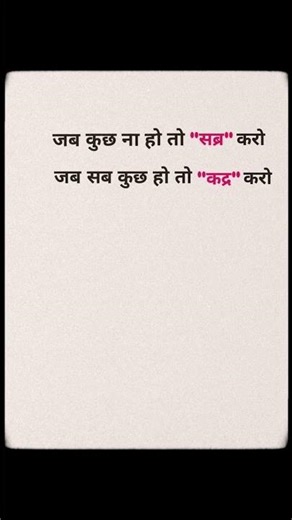 जब कुछ ना हो तो "सब्र" करो
जब सब कुछ हो तो "कद्र" करो